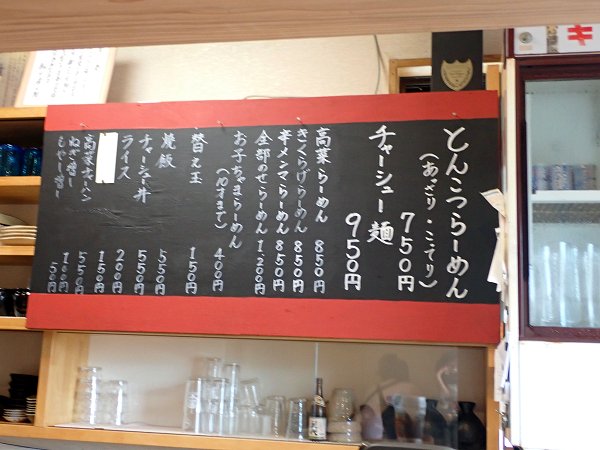 とんこつらーめん
(あっさり・こってり)
750円
チャーシュー麺
950円
高菜らーめん 850円
きくらげらーめん 850円
辛メンマらーめん 850円
全部のせらーめん 1,200円
お子ちゃまらーめん
(10才まで) 400円
替え玉 150円
焼飯 550円
チャーシュー丼 550円
ライス 200円
150円
高菜チャーハン 550円
ねぎ増し 100円
もやし増し 50円
キ